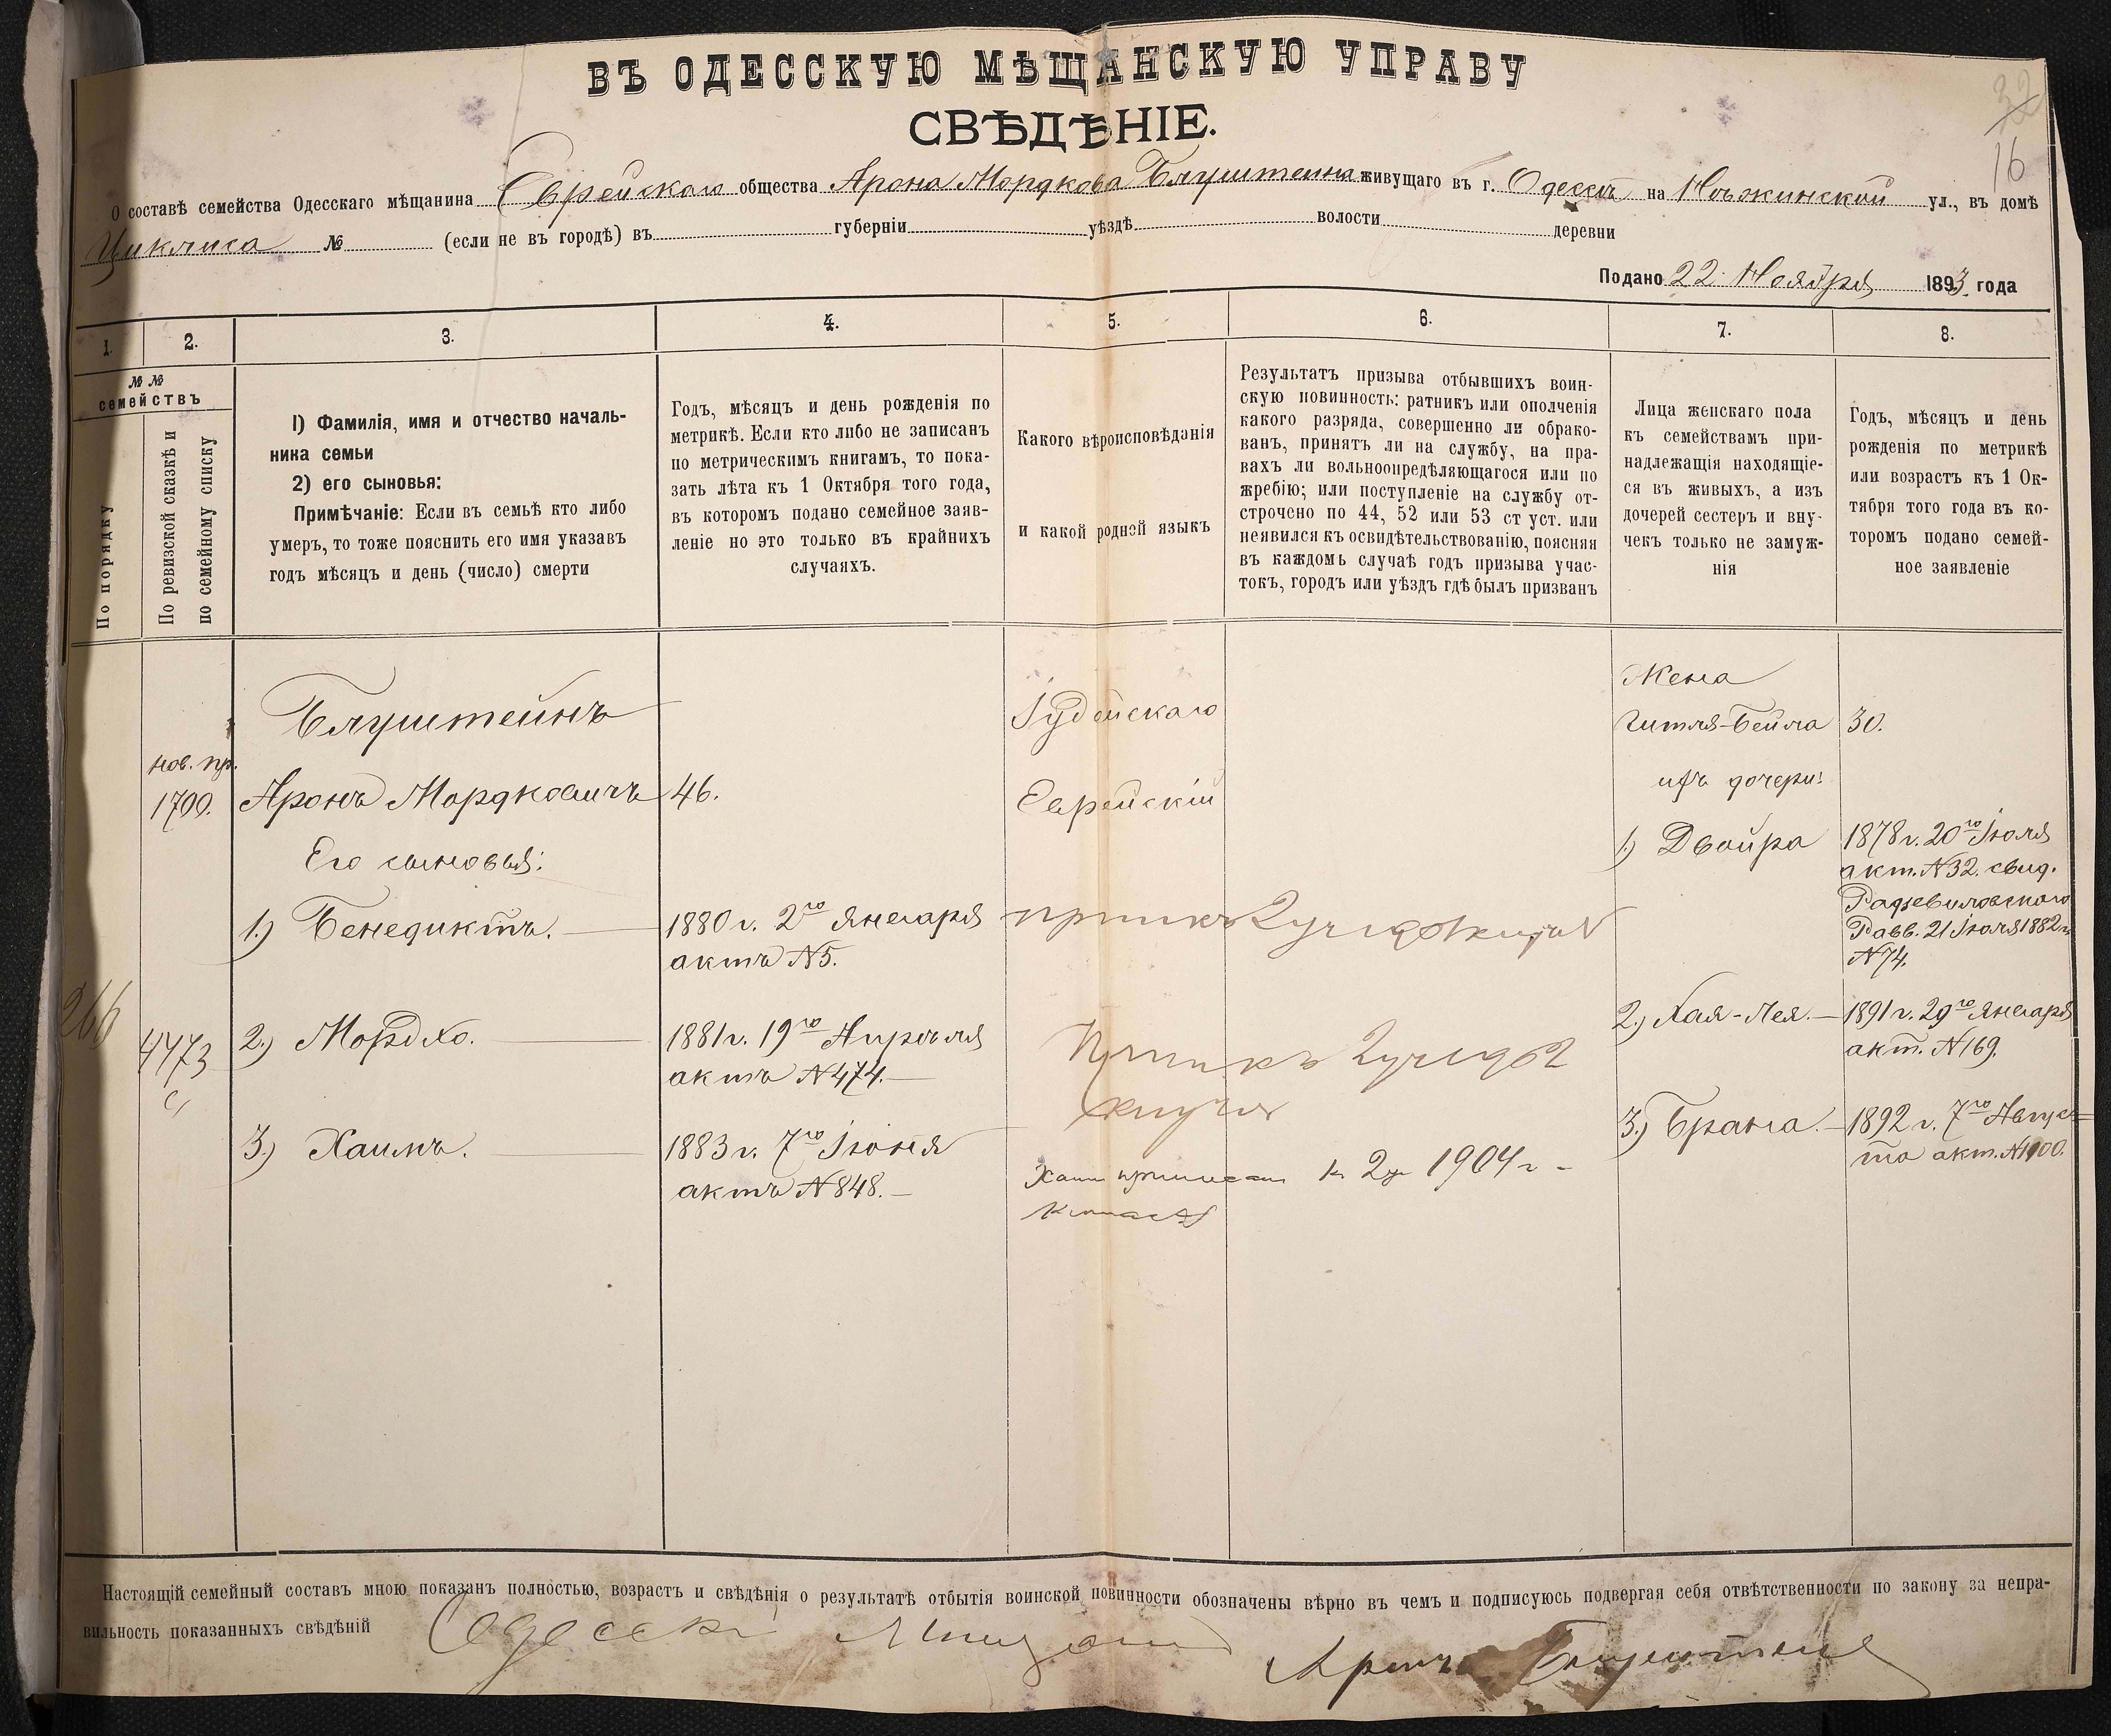 ВЪ ОДЕССКУЮ МѢЩАНСКУЮ УПРАВУ
СВѢДѢНІЕ.
32
16
О составѣ семейства Одесскаго мѣщанина Еврейскаго общества Арона Мордкова Блуштейна живущаго въ г. Одессѣ на Нѣжинской ул., въ домѣ
Циклиса № (если не въ городѣ) въ губерніи уѣздѣ волости деревни
Подано 22 Ноября 1893 года
1.
2.
3.
4.
5.
6.
7.
8.
№ №
семействъ
По порядку
По ревизской сказкѣ и
по семейному списку
1) Фамилія, имя и отчество началь-
ника семьи
2) его сыновья:
Примѣчаніе: Если въ семьѣ кто либо
умеръ, то тоже пояснить его имя указавъ
годъ мѣсяцъ и день (число) смерти
Годъ, мѣсяцъ и день рожденія по
метрикѣ. Если кто либо не записанъ
по метрическимъ книгамъ, то пока-
зать лѣта къ 1 Октября того года,
въ которомъ подано семейное заяв-
леніе но это только въ крайнихъ
случаяхъ.
Какого вѣроисповѣданія
и какой родной языкъ
Результатъ призыва отбывшихъ воин-
скую повинность: ратникъ или ополченія
какого разряда, совершенно ли обрако-
ванъ, принятъ ли на службу, на пра-
вахъ ли вольноопредѣляющагося или по
жребію; или поступленіе на службу от-
строчено по 44, 52 или 53 ст уст. или
неявился къ освидѣтельствованію, поясняя
въ каждомъ случаѣ годъ призыва учас-
токъ, городъ или уѣздъ гдѣ былъ призванъ
Лица женскаго пола
къ семействамъ при-
надлежащія находящіе-
ся въ живыхъ, а изъ
дочерей сестеръ и вну-
чекъ только не замуж-
нія
Годъ, мѣсяцъ и день
рожденія по метрикѣ
или возрастъ къ 1 Ок-
тября того года въ ко-
торомъ подано семей-
ное заявленіе
266
нов. пр.
1700.
4473
Блуштейнъ
Аронъ Мордковичъ 46.
Его сыновья:
1.) Бенедиктъ. 1880 г. 2го Января
актъ N 5.
2.) Мордхо. 1881 г. 19го Апрѣля
актъ N 474.
3.) Хаимъ. 1883 г. 7го Іюня
актъ N 848.
Іудейскаго
Еврейскій
Хаим приписан к 2 1904 г
Жена
Гитля-Бейла 30.
ихъ дочери:
1.) Двойра 1878 г. 20го Іюля
акт. N 32. свид.
Радзевиловскаго
Равв. 21 Іюля 1882 г.
N 74.
2.) Хая-Лея. 1891 г. 29го Января
акт. N 169.
3.) Брана. 1892 г. 7го Авгус-
та акт. N 1900.
Настоящій семейный составъ мною показанъ полностью, возрастъ и свѣдѣнія о результатѣ отбытія воинской повинности обозначены вѣрно въ чемъ и подписуюсь подвергая себя отвѣтственности по закону за непра-
вильность показанныхъ свѣдѣній Одесски Мищанин
Арон Блуштейн